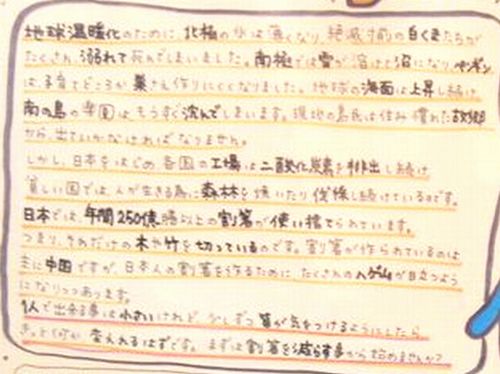 地球温暖化のために、北極の氷は薄くなり、絶滅寸前の白くまたちが
たくさん溺れて死んでしまいました。南極では雪が溶けて沼になりペンギン
は、子育てどころか巣さえ作りにくくなりました。地球の海面は上昇し続け
南の島の楽園は、もうすぐ沈んでしまいます。現地の島民は住み慣れた故郷
から、出ていかなければなりません。
しかし、日本をはじめ各国の工場は二酸化炭素を排出し続け
貧しい国では、人が生きる為に森林を焼いたり伐採し続けているのです。
日本では、年間250億膳以上の割箸が使い捨てられています。
つまり、それだけの木や竹を切っているのです。割箸が作られているのは
主に中国ですが、日本人の割箸を作るために、たくさんのハゲ山が目立つよう
になりつつあります。
1人で出来る事は小さいけれど、少しずつ皆が気をつけるようにしたら
きっと何か変えれるはずです。まずは割箸を減らす事から始めませんか?